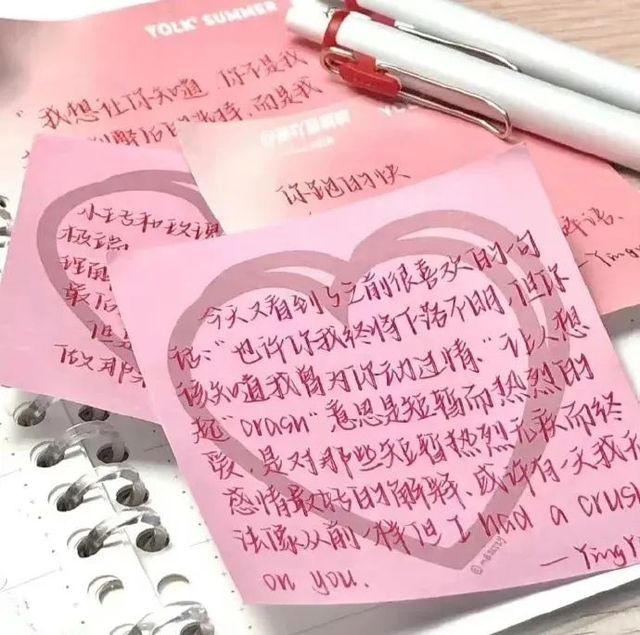 YOLK' SUMMER
"我想让你知道,你不是我
而是我
你跑的快
YO
—Ying
小王子和玫瑰
最后
但
做那
今天又看到了之前很喜欢的一句
话:"也许你我终将下落不明,但你
该知道我曾为你动过情."让人想
起"crush"意思是短暂而热烈的
爱,是对那些短暂热烈无疾而终
感情最好的解释.或许有一天我无
法像从前一样但I had a crush
on you.
—YingY